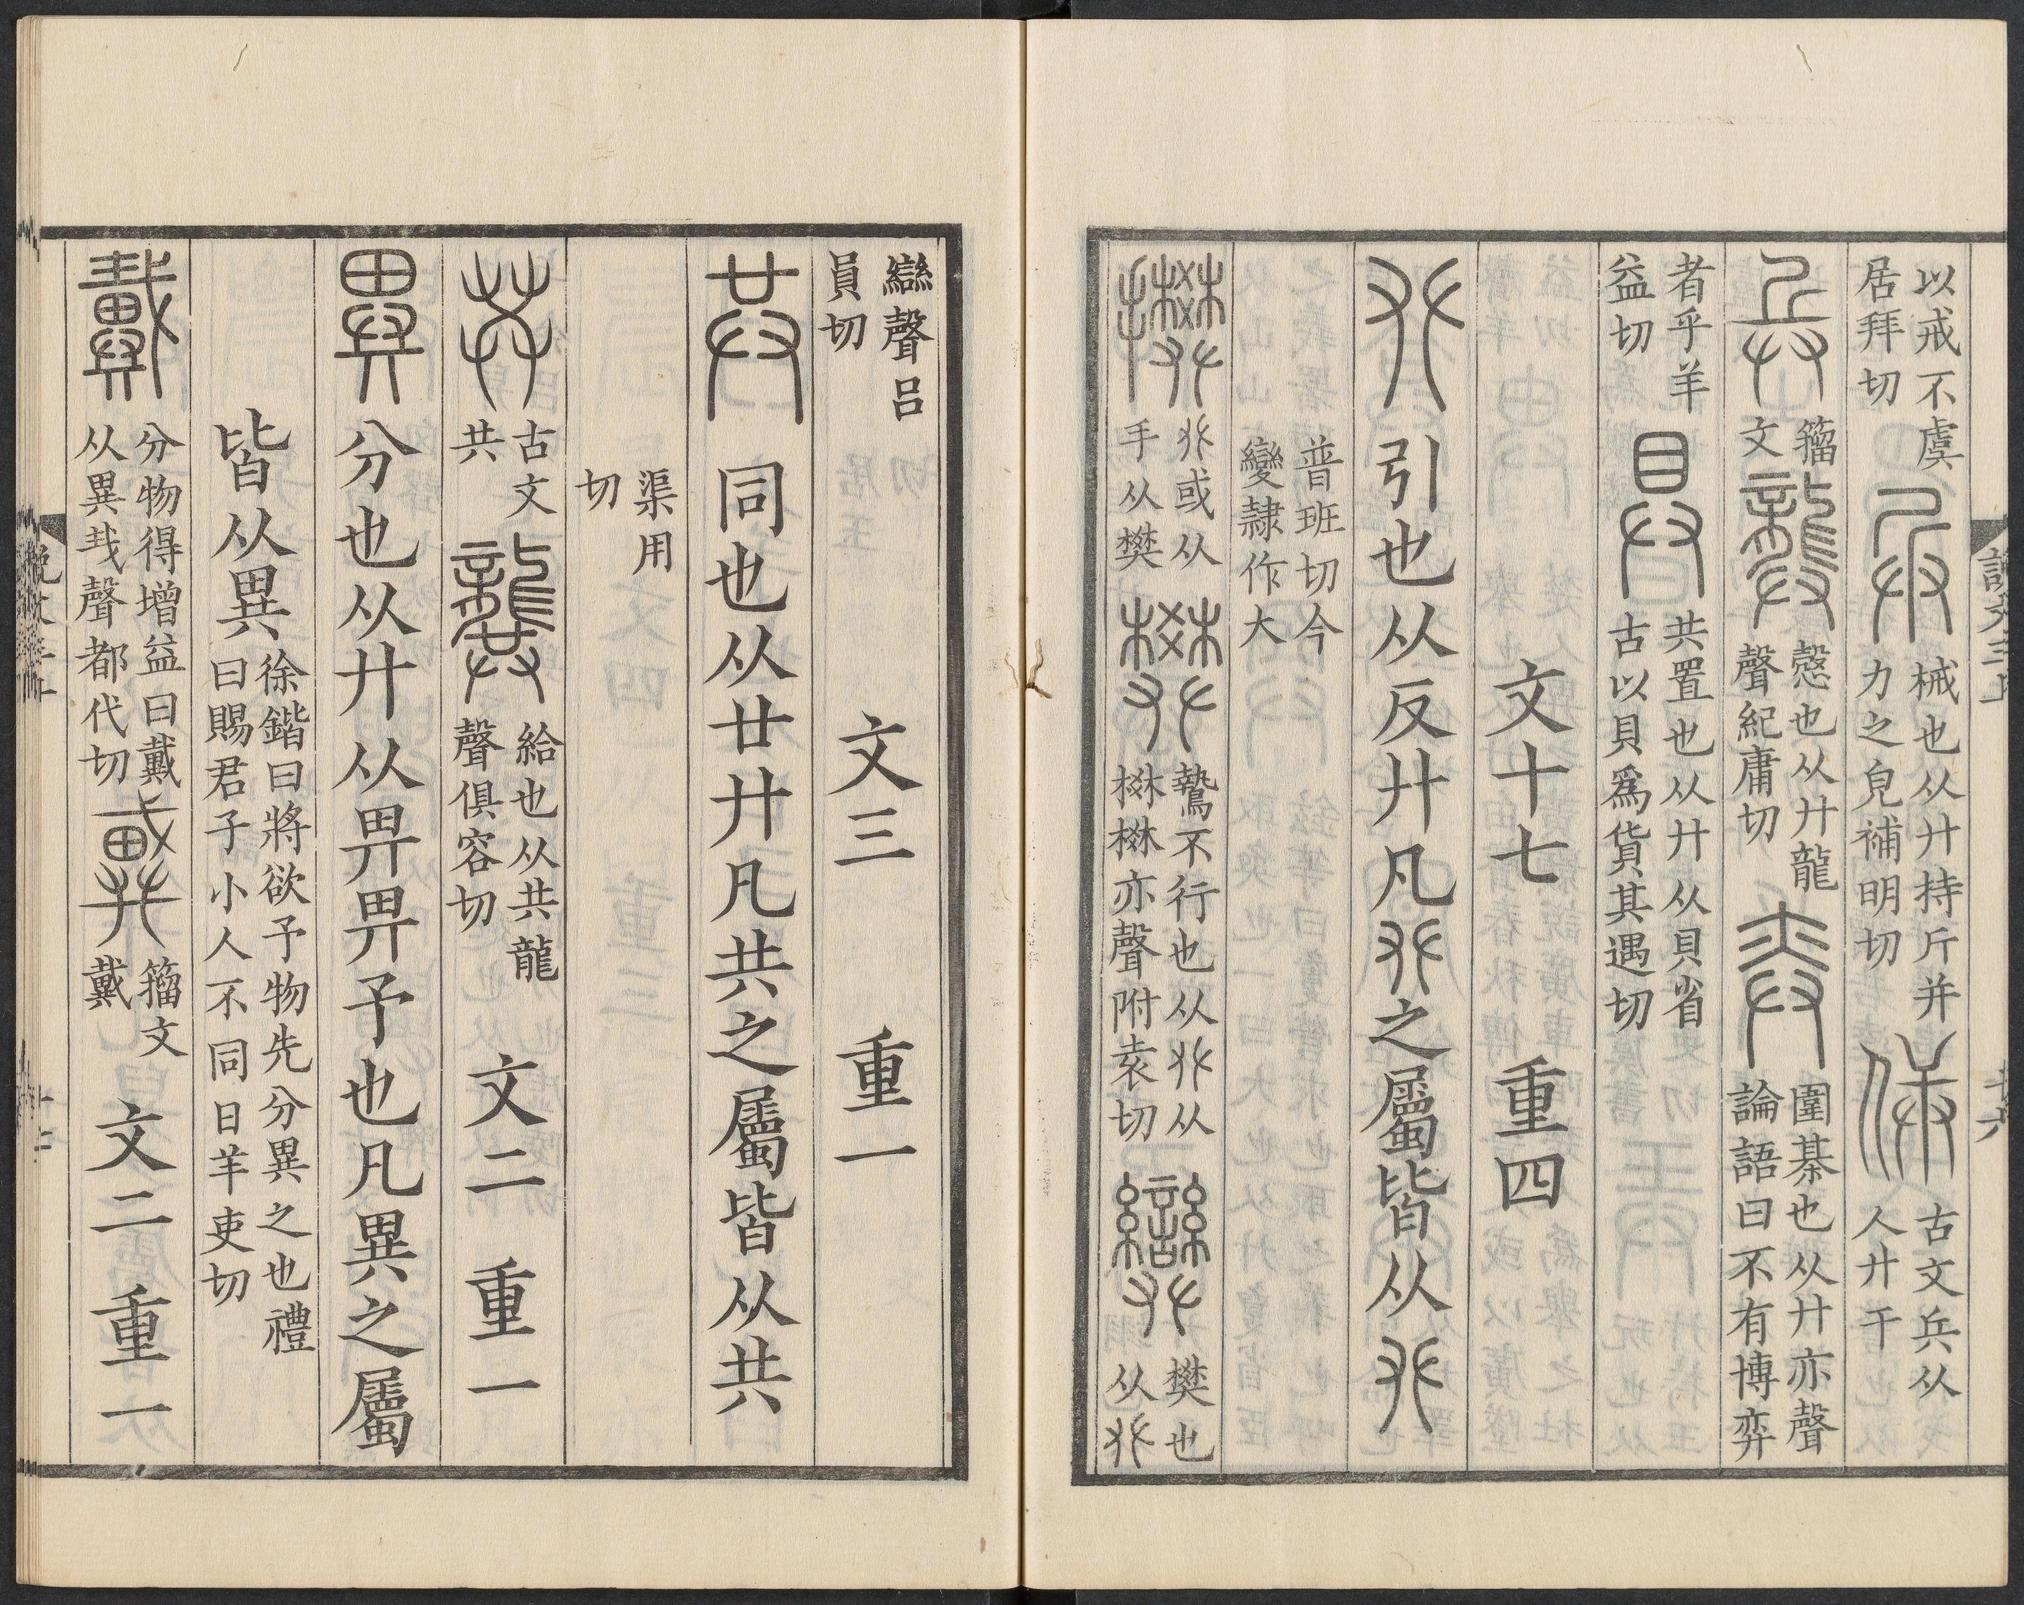 以戒不虞
居拜切
械也从廾持斤并
力之皃補明切
古文兵从
人廾干
籀
文
愨也从廾龍
聲紀庸切
圍棊也从廾亦聲
論語曰不有博弈
者乎羊
益切
共置也从廾从貝省
古以貝爲貨其遇切
文十七 重四
𠬜 引也从反廾凡𠬜之屬皆从𠬜
普班切今
變隷作大
𠬜或从
手从樊
鷙不行也从𠬜从
棥棥亦聲附袁切
樊也
从𠬜
䜌聲呂
員切
文三 重一
共 同也从廿廾凡共之屬皆从共
渠用
切
古文
共
龔
給也从共龍
聲俱容切
文二 重一
異 分也从廾从畀畀予也凡異之屬
皆从異
徐鍇曰將欲予物先分異之也禮
曰賜君子小人不同日羊吏切
戴
分物得增益曰戴
从異𢦏聲都代切
籀文
戴
文二 重一
說文三上
十六